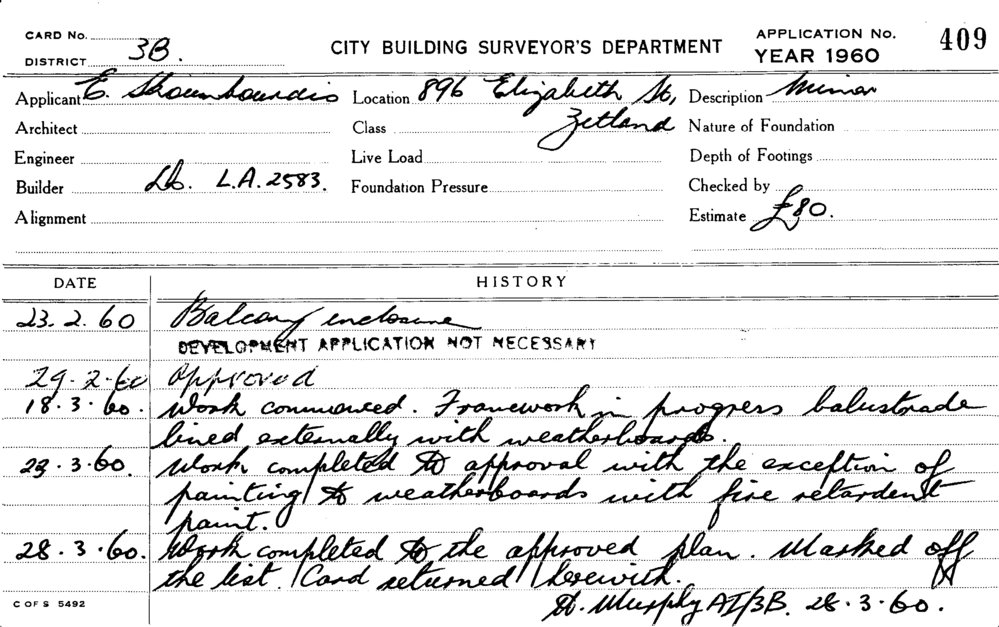 CARD No.
DISTRICT 3B.
CITY BUILDING SURVEYOR'S DEPARTMENT
APPLICATION No. 409
YEAR 1960
Applicant E. Location 896 Elizabeth St, Description Minor
Architect Class Zetland Nature of Foundation
Engineer Live Load Depth of Footings
Builder L.A. 2583. Foundation Pressure Checked by
Alignment Estimate £80.
DATE HISTORY
23. 2. 60 Balcony enclosure
DEVELOPMENT APPLICATION NOT NECESSARY
29. 2. 60 Approved
18. 3. 60. Work commenced. Framework in progress balustrade
lined externally with weatherboards.
23. 3. 60. Work completed to approval with the exception of
painting to weatherboards with fire retardent
paint.
28. 3. 60. Work completed to the approved plan. Marked off
the list. Card returned herewith.
C OF S 5492
Murphy AI/3B. 28. 3. 60.